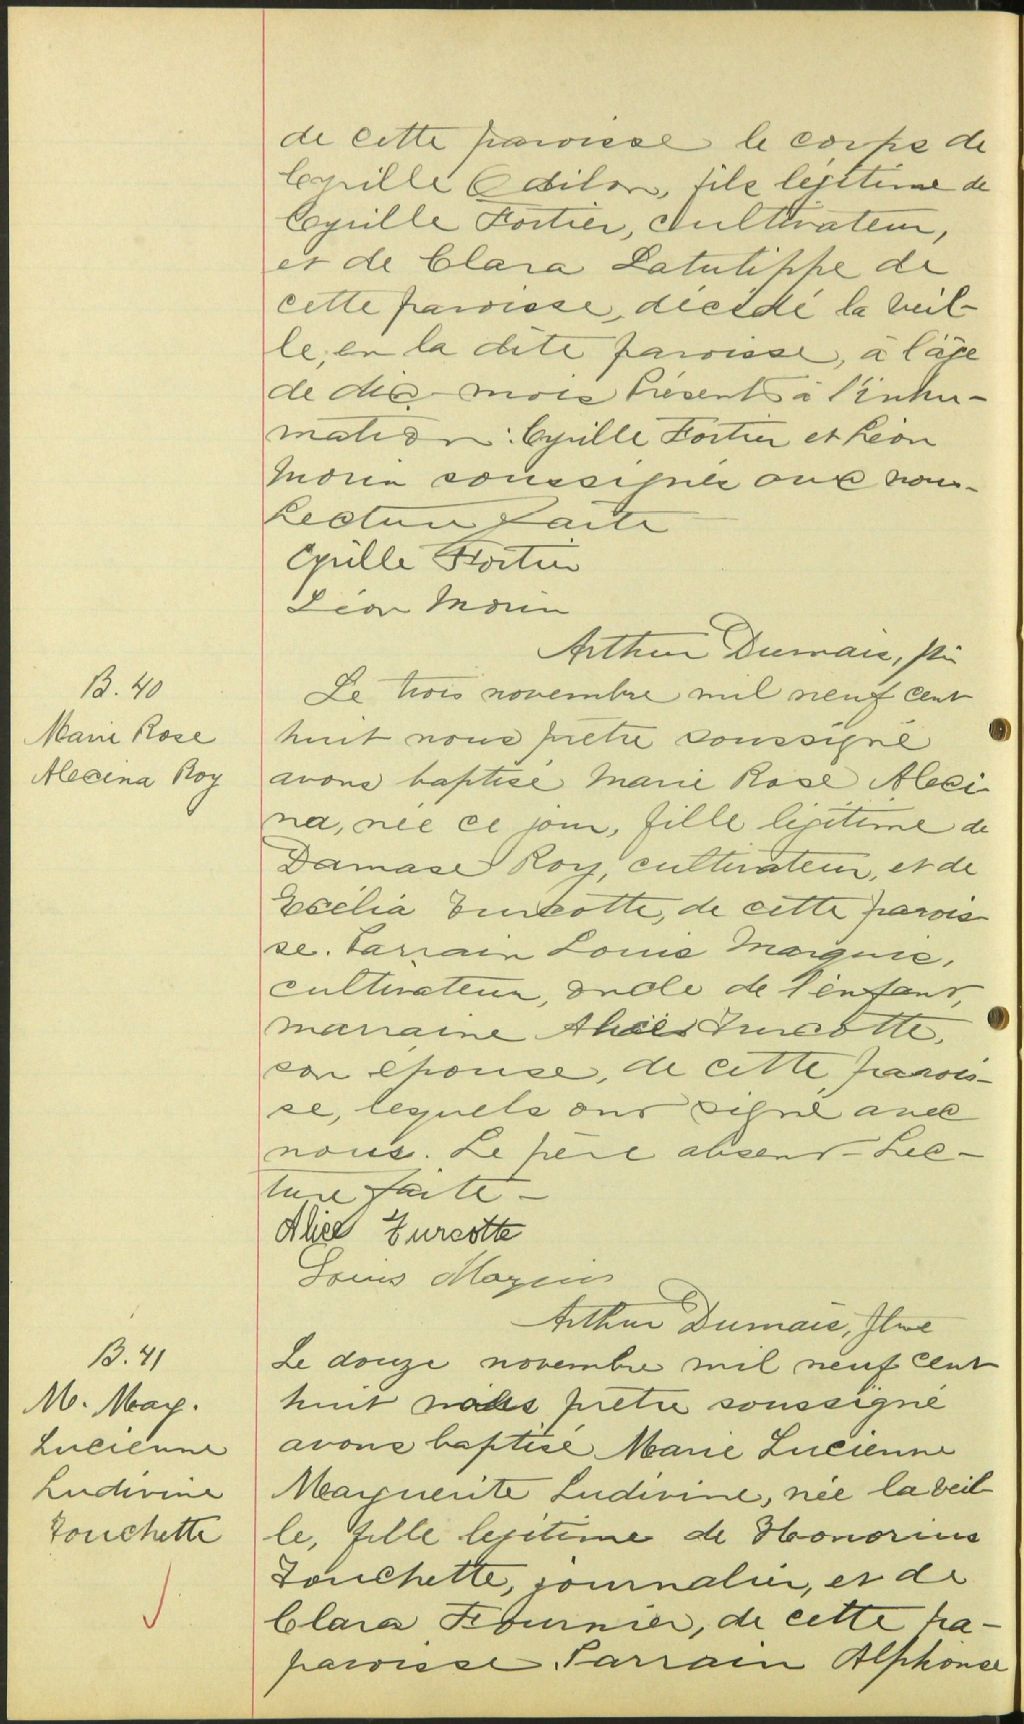 de cette paroisse le corps de
Cyrille Odilon, fils légitime de
Cyrille Fortier, cultivateur,
et de Clara Latulippe de
cette paroisse, décédé la veil-
le, en la dite paroisse, à l'âge
de dix-mois Présents à l'inhu-
mation: Cyrille Fortier et Léon
Morin soussignés avec nous-
Lecture faite
Cyrille Fortier
Léon Morin
Arthur Dumais, ptre
B. 40
Marie Rose
Alecina Roy
Le trois novembre mil neuf cent
huit nous prêtre soussigné
avons baptisé Marie Rose Aleci-
na, née ce jour, fille légitime de
Damase Roy, cultivateur, et de
Exélia Turcotte, de cette parois-
se. Parrain Louis Marquis,
cultivateur, oncle de l'enfant,
marraine Alice Turcotte,
son épouse, de cette parois-
se, lesquels ont signé avec
nous. Le père absent - Lec-
ture faite -
Alice Turcotte
Louis Marquis
Arthur Dumais, ptre
B. 41
M. Marg.
Lucienne
Ludivine
Touchette
Le douze novembre mil neuf cent
huit nous prêtre soussigné
avons baptisé Marie Lucienne
Marguerite Ludivine, née la veil-
le, fille légitime de Honorius
Touchette, journalier, et de
Clara Fournier, de cette pa-
paroisse. Parrain Alphonse